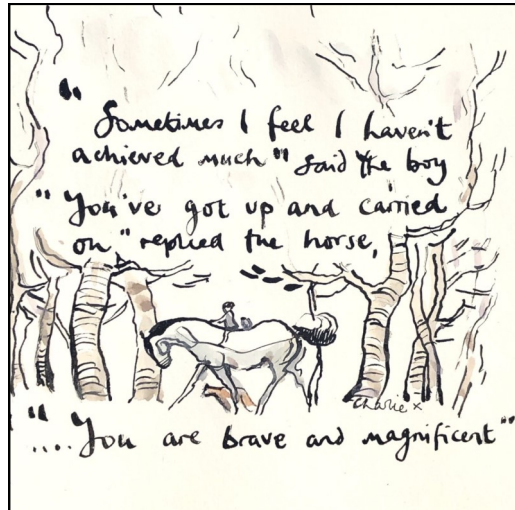 "Sometimes I feel I haven't
achieved much" said the boy
"You've got up and carried
on" replied the horse,
Charlie x
"....You are brave and magnificent"